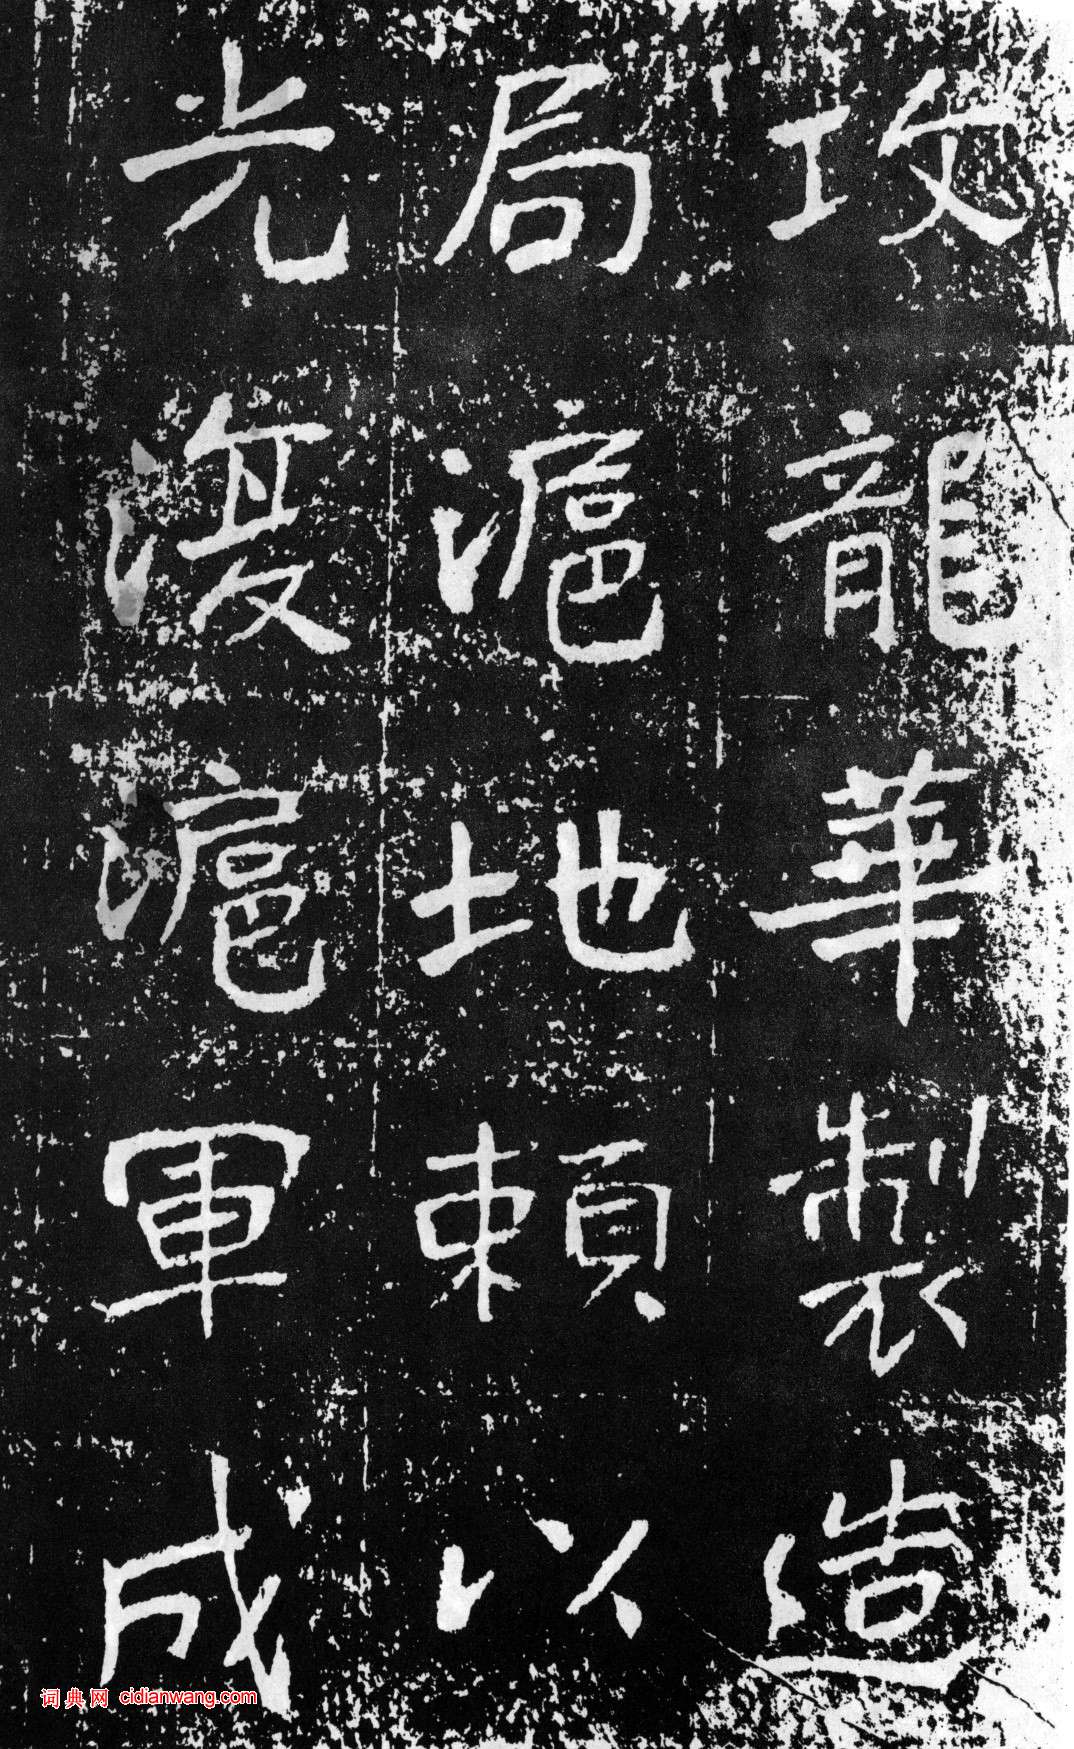 攻龍華製造
局滬地賴以
光復滬軍成
词典网 cidianwang.com